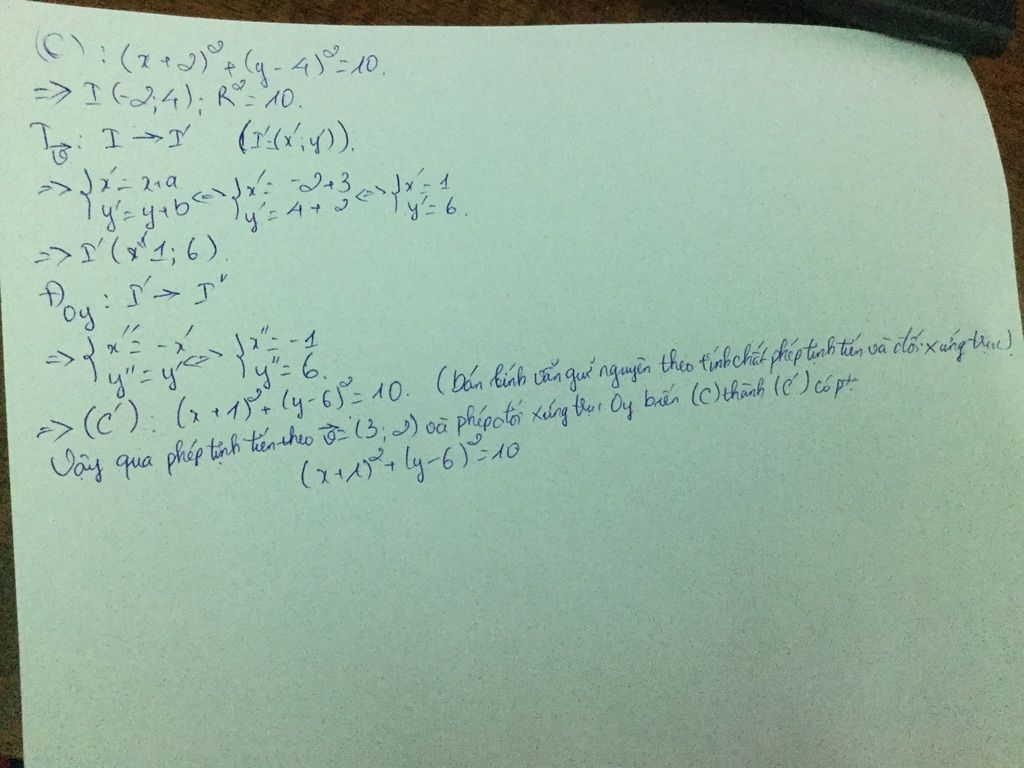 (C) : (x + 2)² + (y - 4)² = 10.
=> I (-2; 4); R² = 10.
T_v⃗ : I → I' (I'=(x'; y')).
=> { x' = x+a ; y' = y+b <=> { x' = -2+3 ; y' = 4 + 2 <=> { x' = 1 ; y' = 6.
=> I' (1; 6).
Đ_Oy : I' → I''
=> { x'' = -x' ; y'' = y' <=> { x'' = -1 ; y'' = 6.
=> (C') : (x + 1)² + (y - 6)² = 10. (bán kính vẫn giữ nguyên theo tính chất phép tịnh tiến và đối xứng trục)
Vậy qua phép tịnh tiến theo v⃗ = (3; 2) và phép đối xứng trục Oy biến (C) thành (C') có pt
(x + 1)² + (y - 6)² = 10